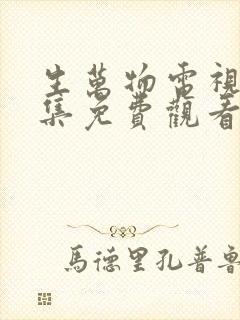 生萬物電視
集免費觀看
馬德里孔普魯